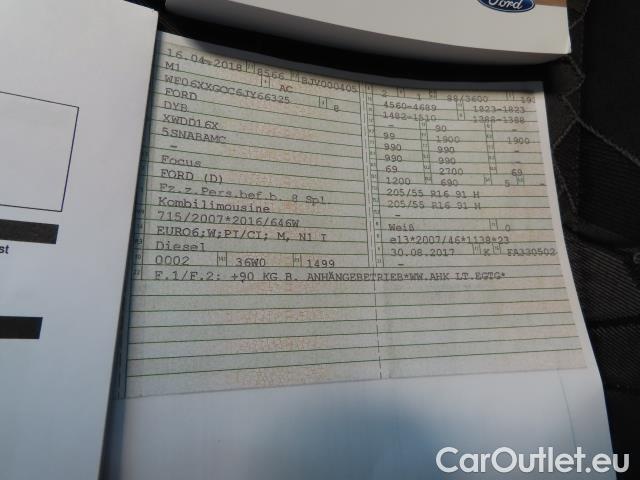 Ford
16.04.2018 8566 BJV000405 2 1 88/3600
M1 AC 4560-4689 1823-1823
WF06XXGCC6JY66325 8 1482-1510 1388-1388
FORD 90 -
DYB 99 1900 1900
XWDD16X 990 990 -
5SNABAMC 990 990 -
- 69 2700 69
Focus 1200 690 5 -
FORD (D) 205/55 R16 91 H
Fz.z.Pers.bef.b. 8 Spl 205/55 R16 91 H
Kombilimousine -
715/2007*2016/646W Weiß 0
EURO6;W;PI/CI; M, N1 I e13*2007/46*1138*23
Diesel 30.08.2017 K FA330502
0002 36W0 1499 -
F.1/F.2: +90 KG B. ANHÄNGEBETRIEB*WW.AHK LT.EGTG*
CarOutlet.eu